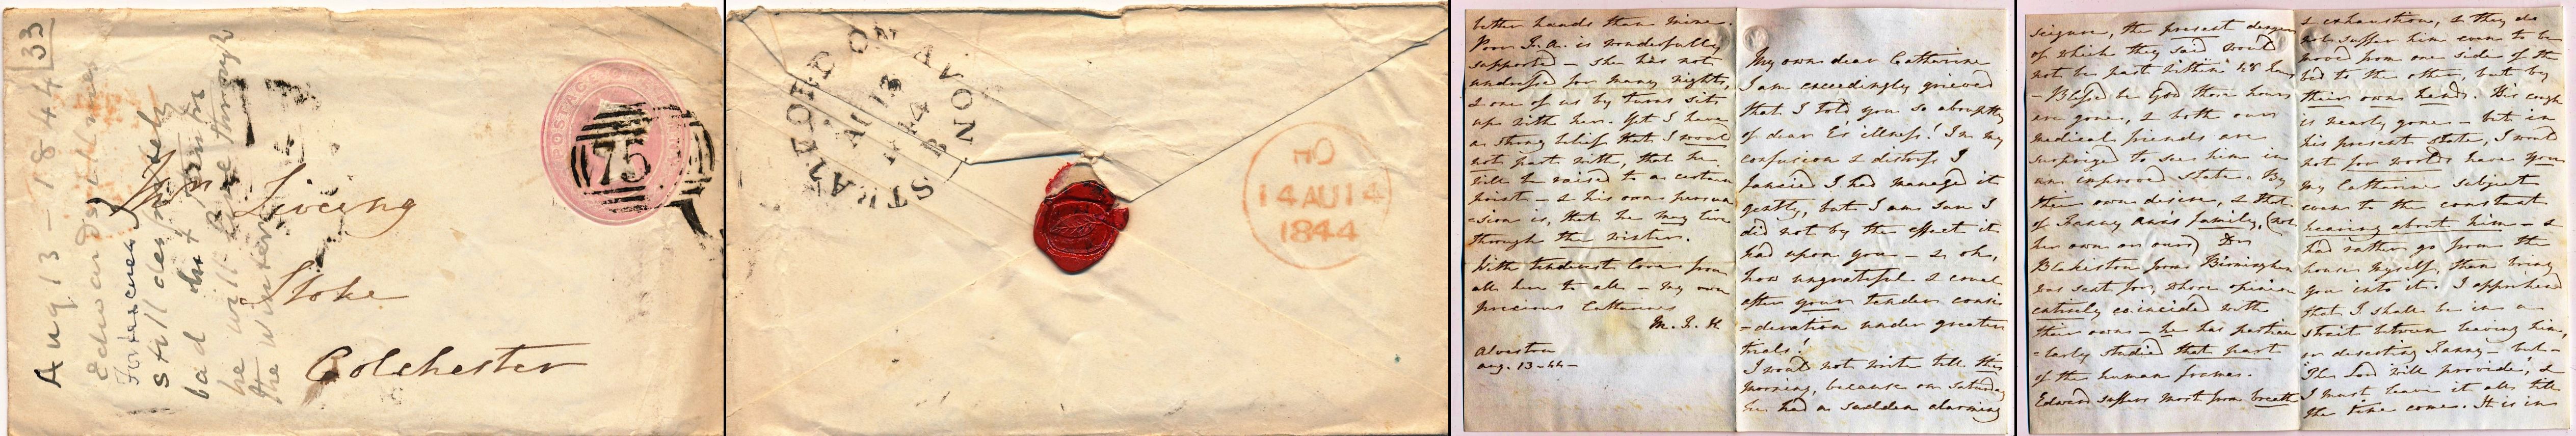 Aug 13 - 1844 33
Edward's illness
Fortescues
still desperately
bad but thinks
he will live through
the winter
Mrs Liveing
Stoke
Colchester
POSTAGE ONE
75
STRATFORD ON AVON
AU 13
1844
HO
14 AU 14
1844
better hands than mine.
Poor F. A. is wonderfully
supported - she has not
undressed for many nights,
& one of us by turns sits
up with her. Yet I have
a strong belief that I would
not part with, that he
will be raised to a certain
point - & his own persua
-sion is, that he may live
through the winter.
With tenderest love from
all here to all - my own
precious Catharine
M. F. H.
Alveston
Aug. 13 - 44 -
My own dear Catharine
I am exceedingly grieved
that I told you so abruptly
of dear E's illness! In my
confusion & distress I
fancied I had managed it
gently, but I am sure I
did not by the effect it
had upon you - & oh,
how ungrateful & cruel
after your tender consi
-deration under greater
trials!
I would not write till this
morning, because on Saturday
he had a sudden alarming
seizure, the present danger
of which they said would
not be past within 48 hours
- Blessed be God those hours
are gone, & both our
medical friends are
surprized to see him in
an improved state. By
their own desire, & that
of Fanny and family, (not
her own or ours) Dr
Blakiston from Birmingham
was sent for, whose opinion
entirely coincided with
their own - he has particu
-larly studied that part
of the human frame.
Edward suffers most from breath
& exhaustion, & they do
not suffer him even to be
moved from one side of the
bed to the other, but by
their own hands. His cough
is nearly gone - but in
his present state, I would
not for worlds have you
my Catharine subject
even to the constant
hearing about him - &
had rather go from the
house myself, than bring
you into it. I apprehend
that I shall be in a
strait between leaving him,
or deserting Fanny - but -
The Lord will provide, &
I must leave it all till
the time come. It is in